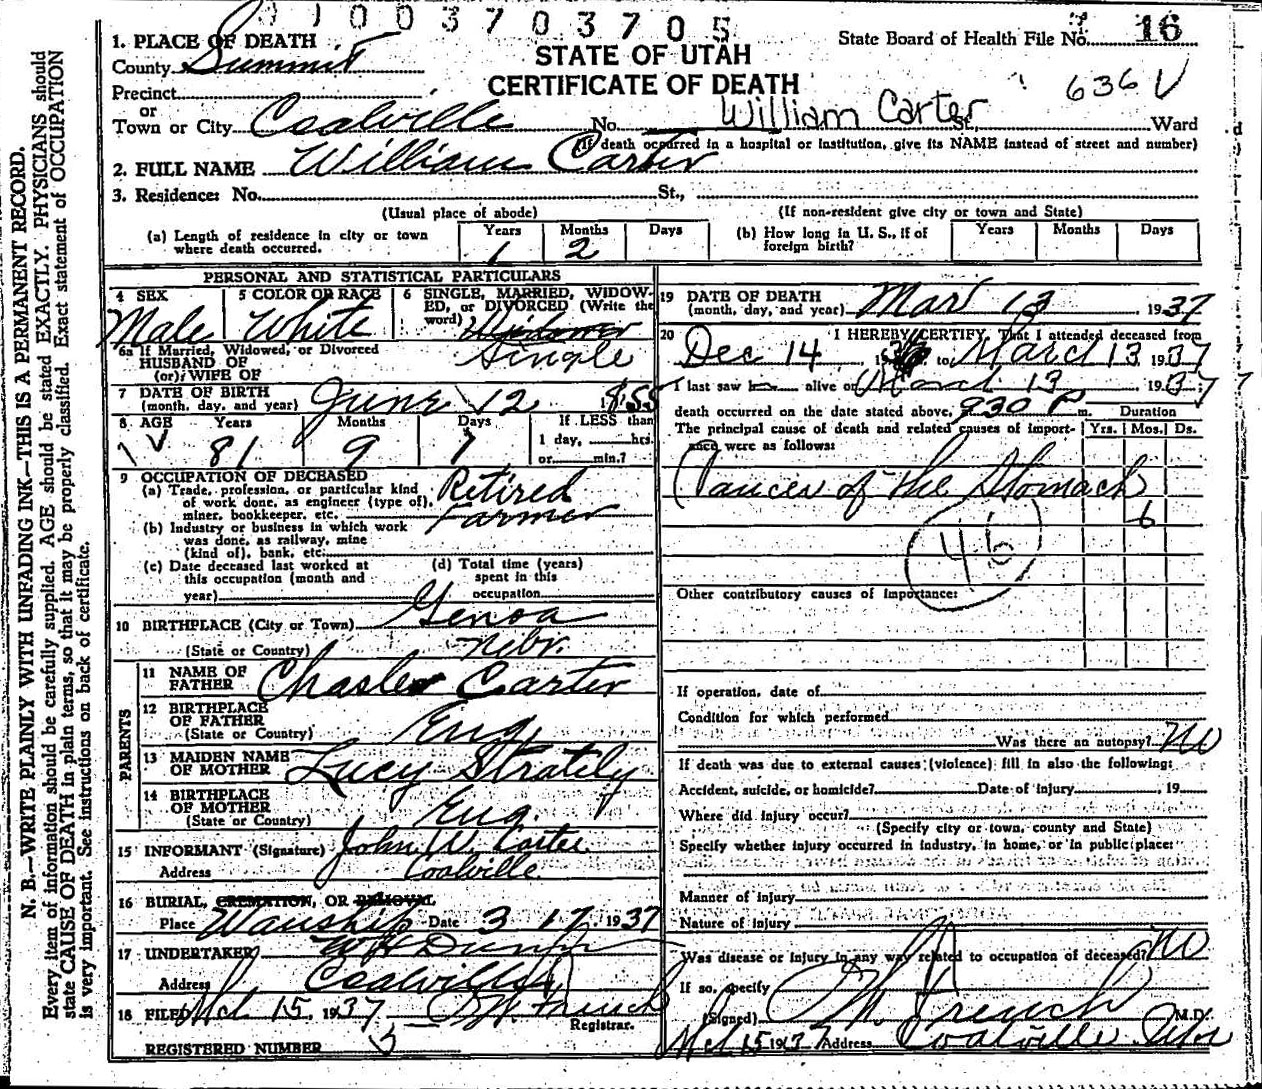 0100370 3705
16
1. PLACE OF DEATH
County Summit
STATE OF UTAH
State Board of Health File No.
Precinct
CERTIFICATE OF DEATH
636 V
or
Town or City Coalville No. William Carter St., Ward
(If death occurred in a hospital or institution, give its NAME instead of street and number)
2. FULL NAME William Carter
3. Residence: No. St.,
(Usual place of abode) (If non-resident give city or town and State)
(a) Length of residence in city or town where death occurred. Years 1 Months 2 Days
(b) How long in U. S., if of foreign birth? Years Months Days
PERSONAL AND STATISTICAL PARTICULARS
4 SEX Male
5 COLOR OR RACE White
6 SINGLE, MARRIED, WIDOWED, or DIVORCED (Write the word) Widower Single
6a If Married, Widowed, or Divorced
HUSBAND OF
(or) WIFE OF
7 DATE OF BIRTH
(month, day, and year) June 12 1855
8 AGE Years 81 Months 9 Days 1
If LESS than
1 day, hrs.
or min.?
9 OCCUPATION OF DECEASED
(a) Trade, profession, or particular kind of work done, as engineer (type of), miner, bookkeeper, etc. Retired Farmer
(b) Industry or business in which work was done, as railway, mine (kind of), bank, etc.
(c) Date deceased last worked at this occupation (month and year)
(d) Total time (years) spent in this occupation
10 BIRTHPLACE (City or Town) Genoa
(State or Country) Nebr.
PARENTS
11 NAME OF FATHER Chasler Carter
12 BIRTHPLACE OF FATHER
(State or Country) Eng.
13 MAIDEN NAME OF MOTHER Lucy Strately
14 BIRTHPLACE OF MOTHER
(State or Country) Eng.
15 INFORMANT (Signature) John W. Carter
Address Coalville
16 BURIAL, CREMATION, OR REMOVAL
Place Wanship Date 3 17 1937
17 UNDERTAKER
Address Coalville
18 FILED Mch 15, 1937 French
Registrar.
REGISTERED NUMBER 5
19 DATE OF DEATH
(month, day, and year) Mar 13, 1937
20 I HEREBY CERTIFY, That I attended deceased from
Dec 14 to March 13 1937
I last saw alive on March 13, 1937;
death occurred on the date stated above, 930 P m. Duration
The principal cause of death and related causes of importance were as follows: Yrs. Mos. Ds.
Cancer of the Stomach
6
46
Other contributory causes of importance:
If operation, date of
Condition for which performed
Was there an autopsy? No
If death was due to external causes (violence) fill in also the following:
Accident, suicide, or homicide? Date of injury , 19
Where did injury occur?
(Specify city or town, county and State)
Specify whether injury occurred in industry, in home, or in public place:
Manner of injury
Nature of injury
Was disease or injury in any way related to occupation of deceased? No
If so, specify
(Signed) French M.D.
Mch 15 1937 Address Coalville Utah
N. B.—WRITE PLAINLY WITH UNFADING INK—THIS IS A PERMANENT RECORD.
Every item of information should be carefully supplied. AGE should be stated EXACTLY. PHYSICIANS should
state CAUSE OF DEATH in plain terms, so that it may be properly classified. Exact statement of OCCUPATION
is very important. See instructions on back of certificate.